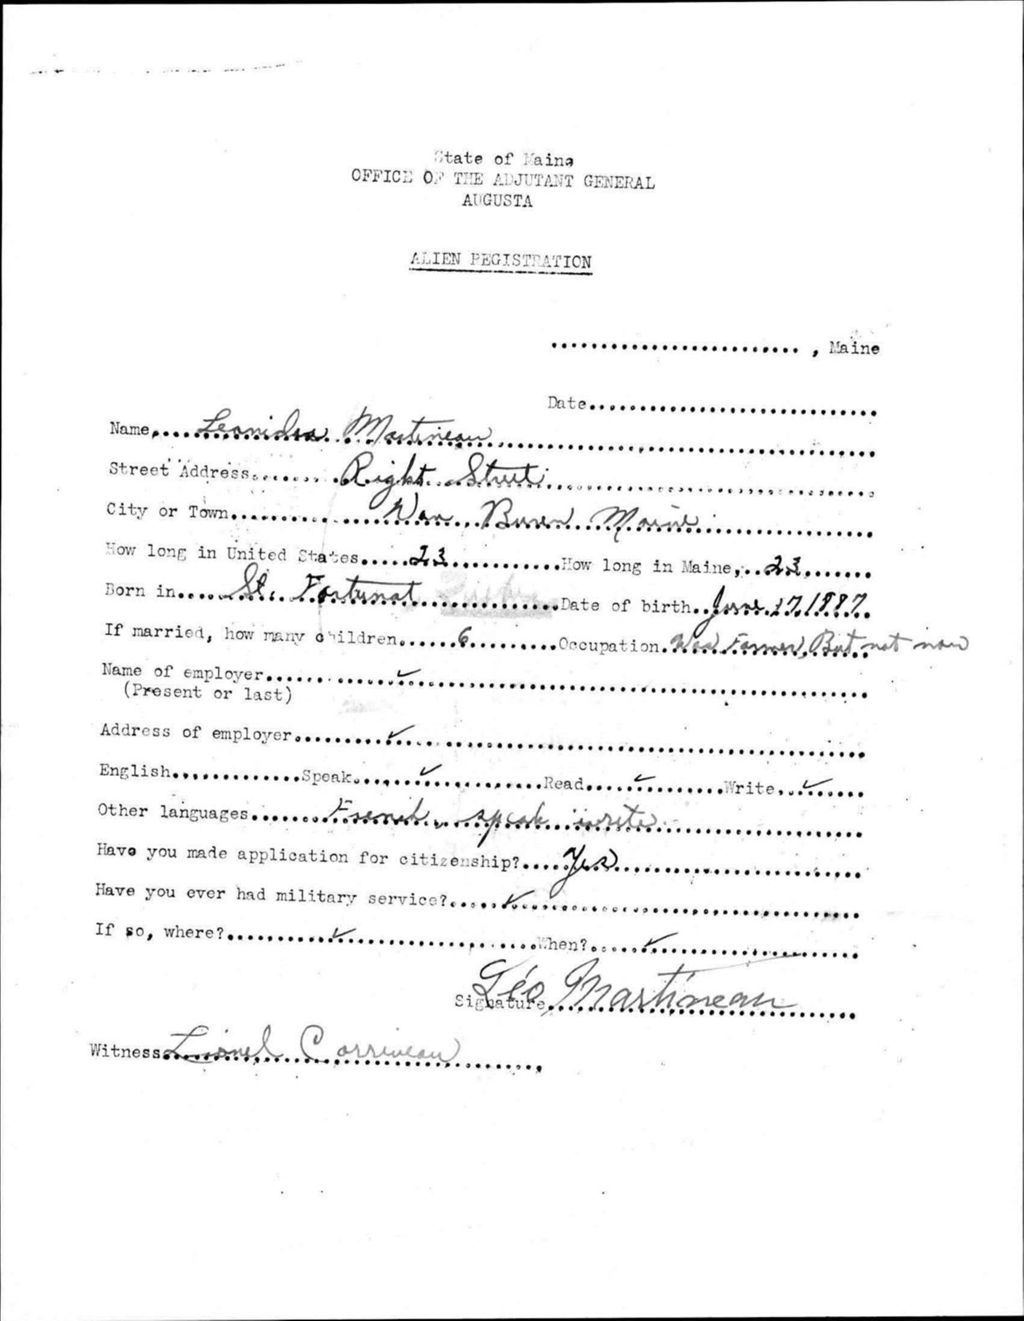 State of Maine
OFFICE OF THE ADJUTANT GENERAL
AUGUSTA
ALIEN REGISTRATION
........................ , Maine
Date............................
Name..... Leonidas Martineau ..............................
Street Address........ Right Street ..............................
City or Town............ Van Buren Maine ................
How long in United States..... 23 ...........How long in Maine... 23 .......
Born in..... St. Fortunat Quebec ...........Date of birth.. June 17, 1887.
If married, how many children..... 6 .........Occupation. Was Farmer, But not now
Name of employer............ ✓ ..............................
(Present or last)
Address of employer......... ✓ ..............................
English.............Speak...... ✓ ...........Read..... ✓ .........Write... ✓ .....
Other languages........ French, speak write ....................
Have you made application for citizenship?.... Yes ........................
Have you ever had military service?...... ✓ ..............................
If so, where?.......... ✓ ....................When?...... ✓ ....................
Signature Léo Martineau ........
Witness Lionel Corriveau ........